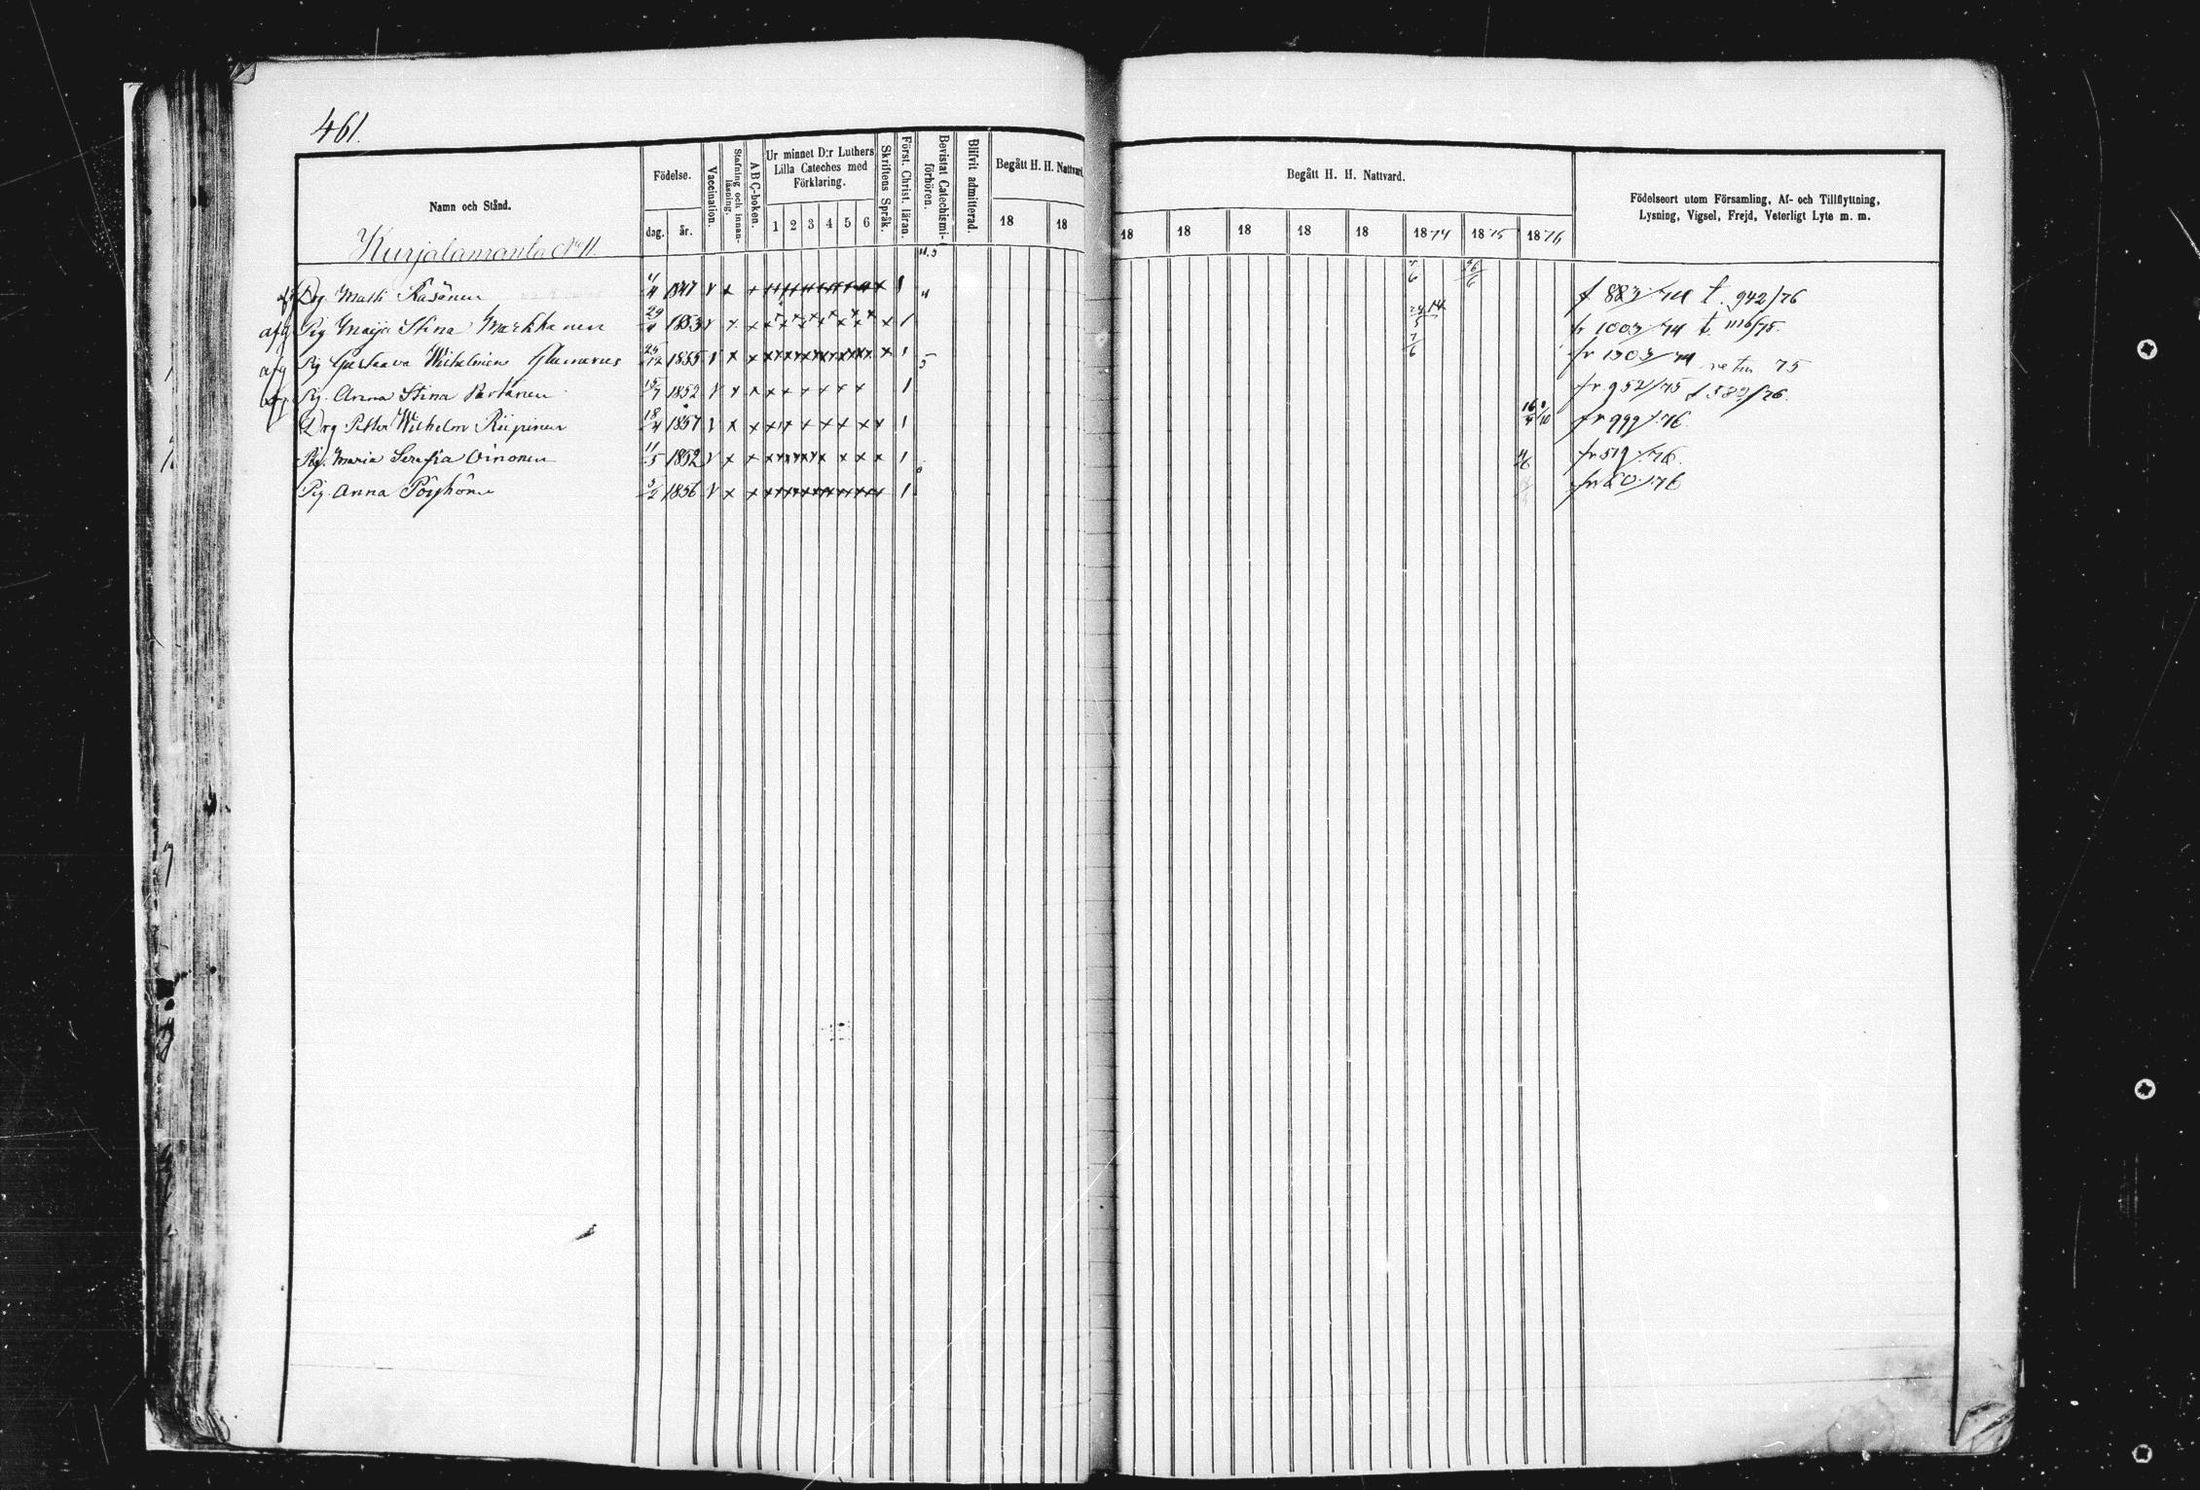 461.
Namn och Stånd.
Födelse.
dag. år.
Vaccination.
Stafning och innanläsning.
A B C-boken.
Ur minnet D:r Luthers Lilla Cateches med Förklaring.
1 2 3 4 5 6
Skriftens Språk.
Först. Christ. läran.
Bevistat Catechismi-förhören.
Blifvit admitterad.
Begått H. H. Nattvard.
18 18
Begått H. H. Nattvard.
18 18 18 18 18 1874 1875 1876
Födelseort utom Församling, Af- och Tillflyttning,
Lysning, Vigsel, Frejd, Veterligt Lyte m. m.
Kurjalamanla No 11.
Drg Matti Räsänen 1847 f 883/74 t. 942/76
afg Pig Maija Stina Markkanen 29/4 1853 fr 1003/74 t 1116/75.
afg Pig Gustaava Wilhelmina 1855 fr 1303/74 retur 75
Pig. Anna Stina Partanen 15/7 1852 fr 952/75 t 582/76
Drg Petter Wilhelm Riipinen 18/4 1857 fr 999/76.
Pig. Maria Serafia Oinonen 11/5 1852 fr 519/76.
Pig. Anna Pöyhönen 1856 fr 60/76